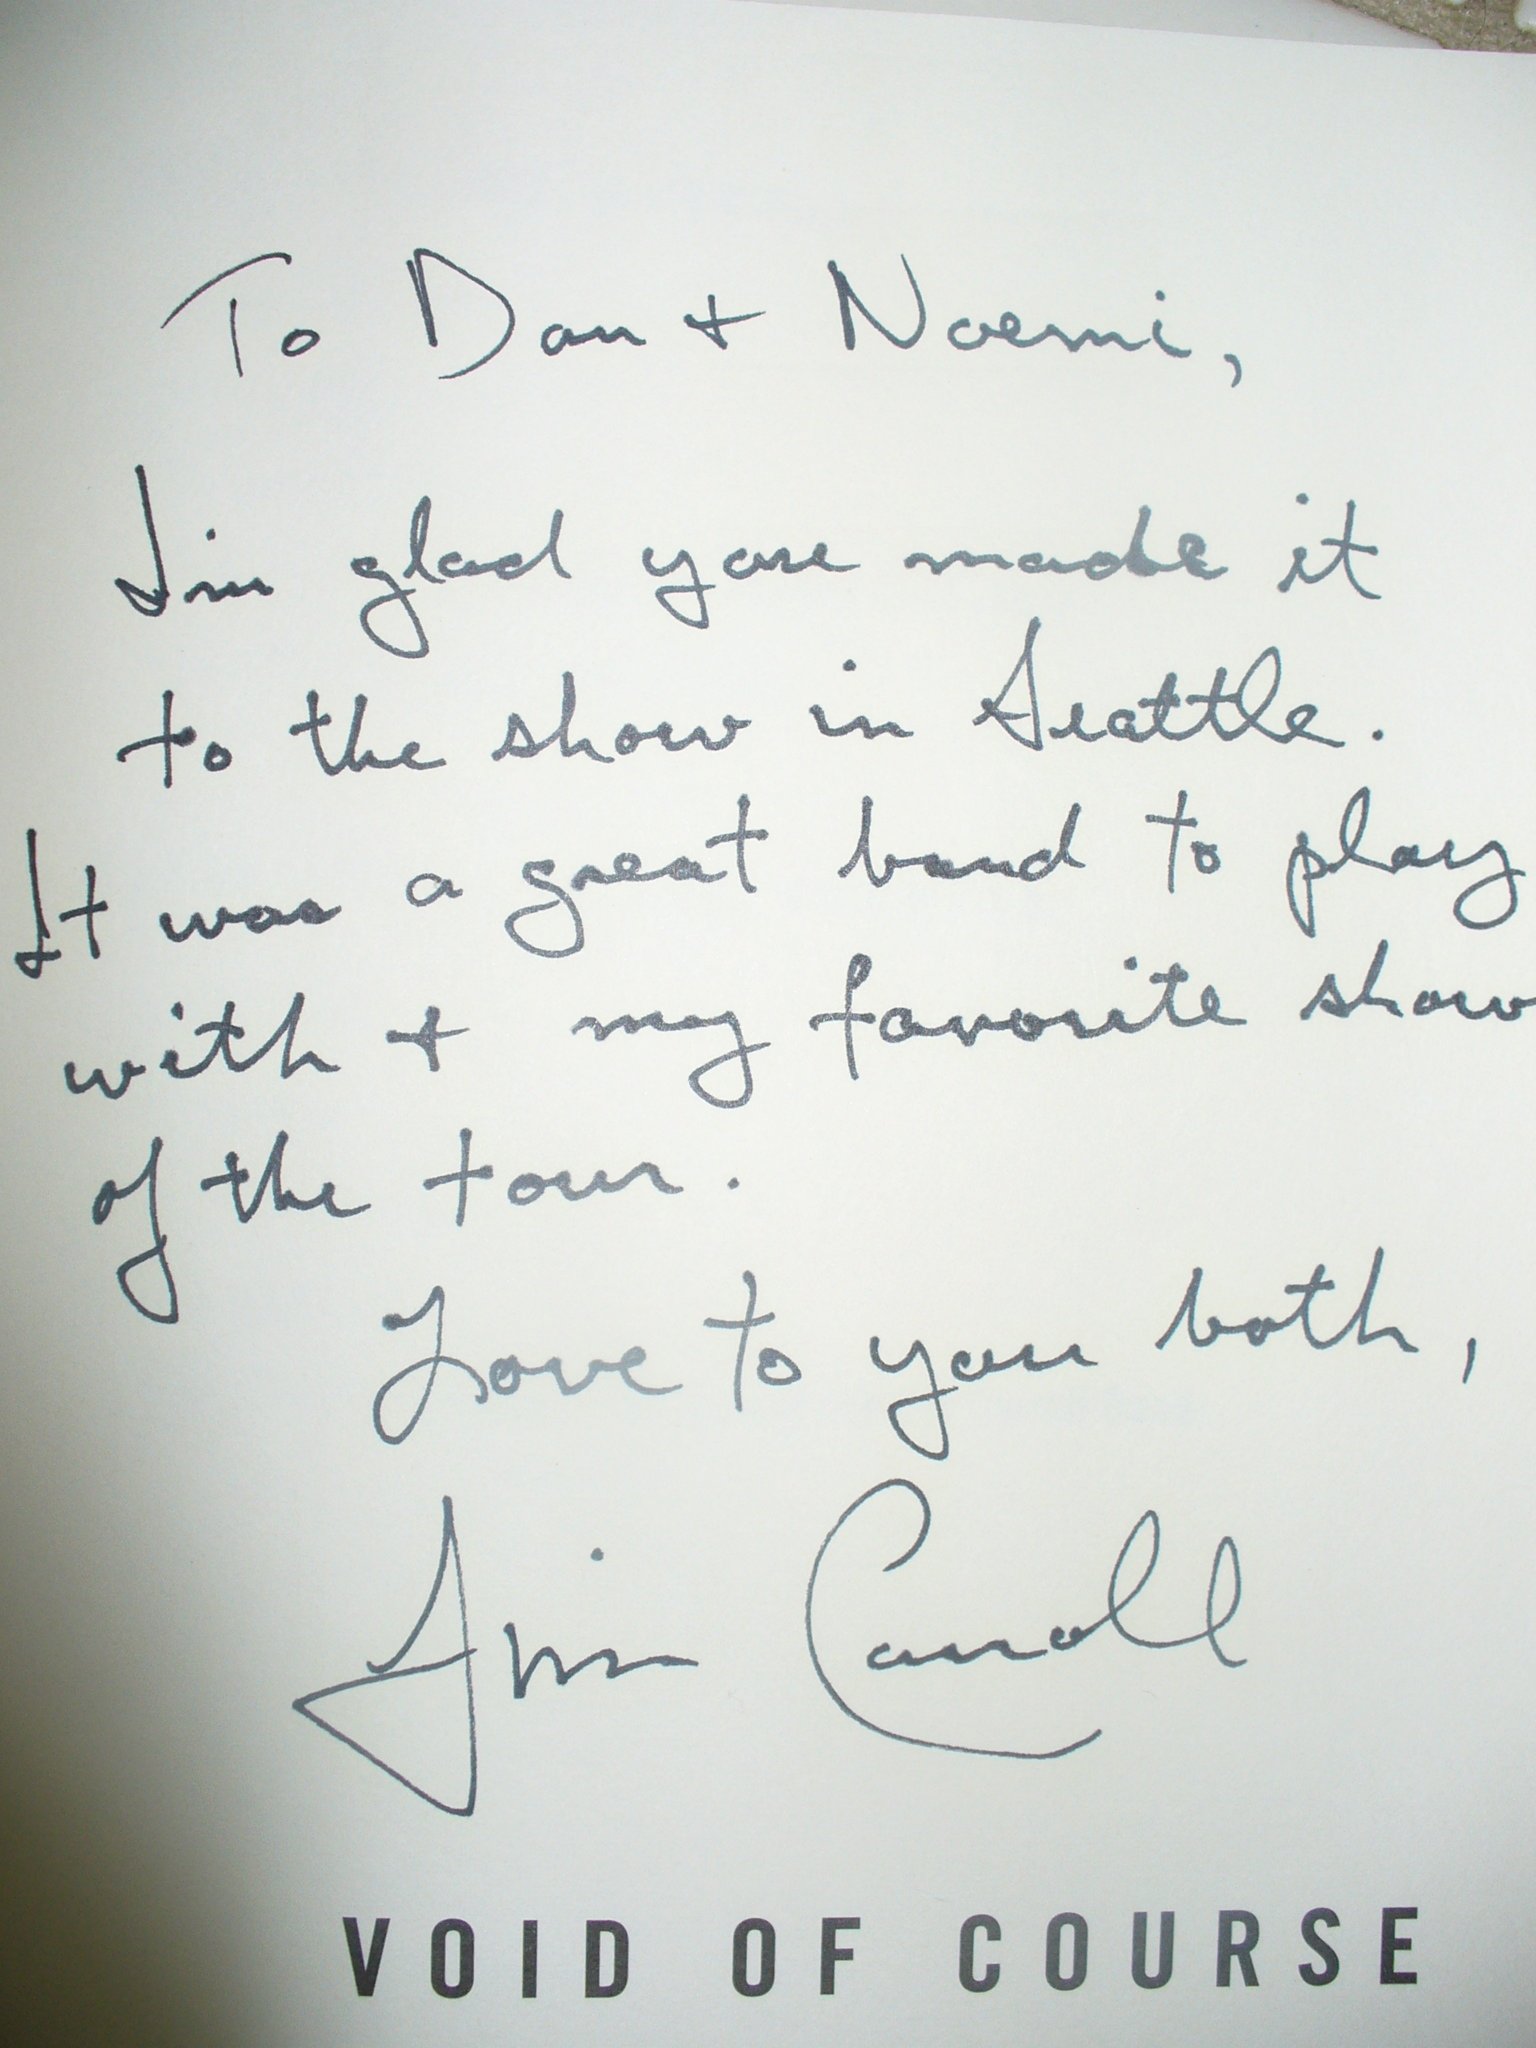 To Dan + Noemi,
I'm glad you made it
to the show in Seattle.
It was a great band to play
with + my favorite show
of the tour.
Love to you both,
Jim Carroll
VOID OF COURSE